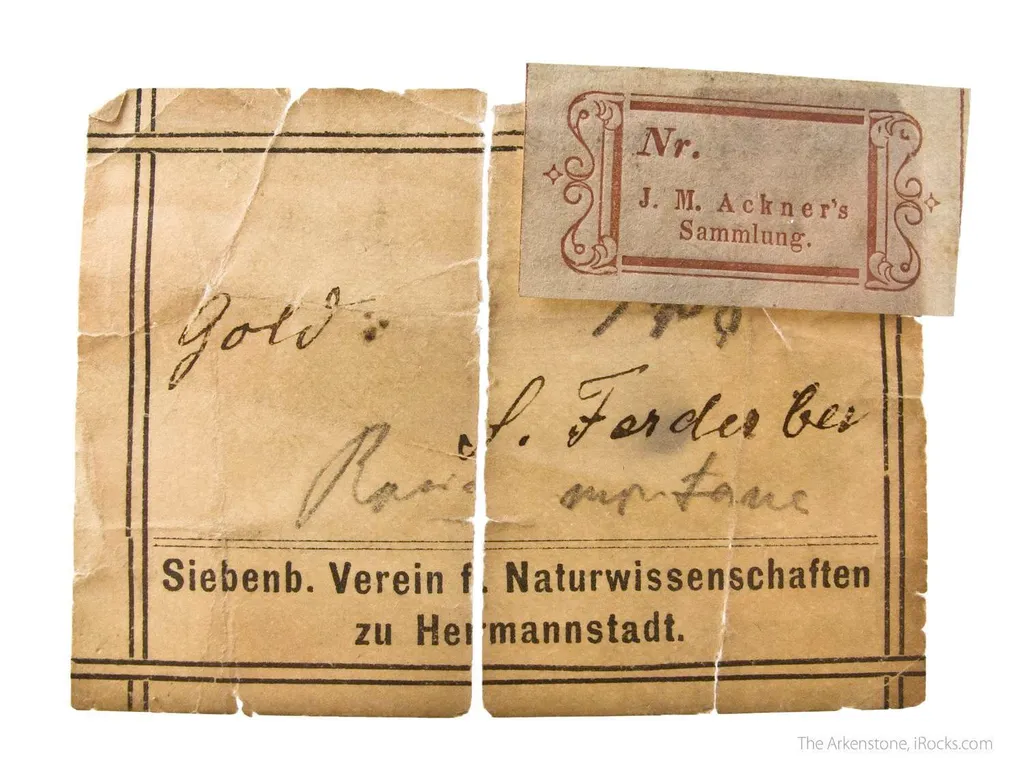 Nr.
J. M. Ackner's
Sammlung.
Gold:
S. Ferderber
montane
Siebenb. Verein f. Naturwissenschaften
zu Hermannstadt.
The Arkenstone, iRocks.com